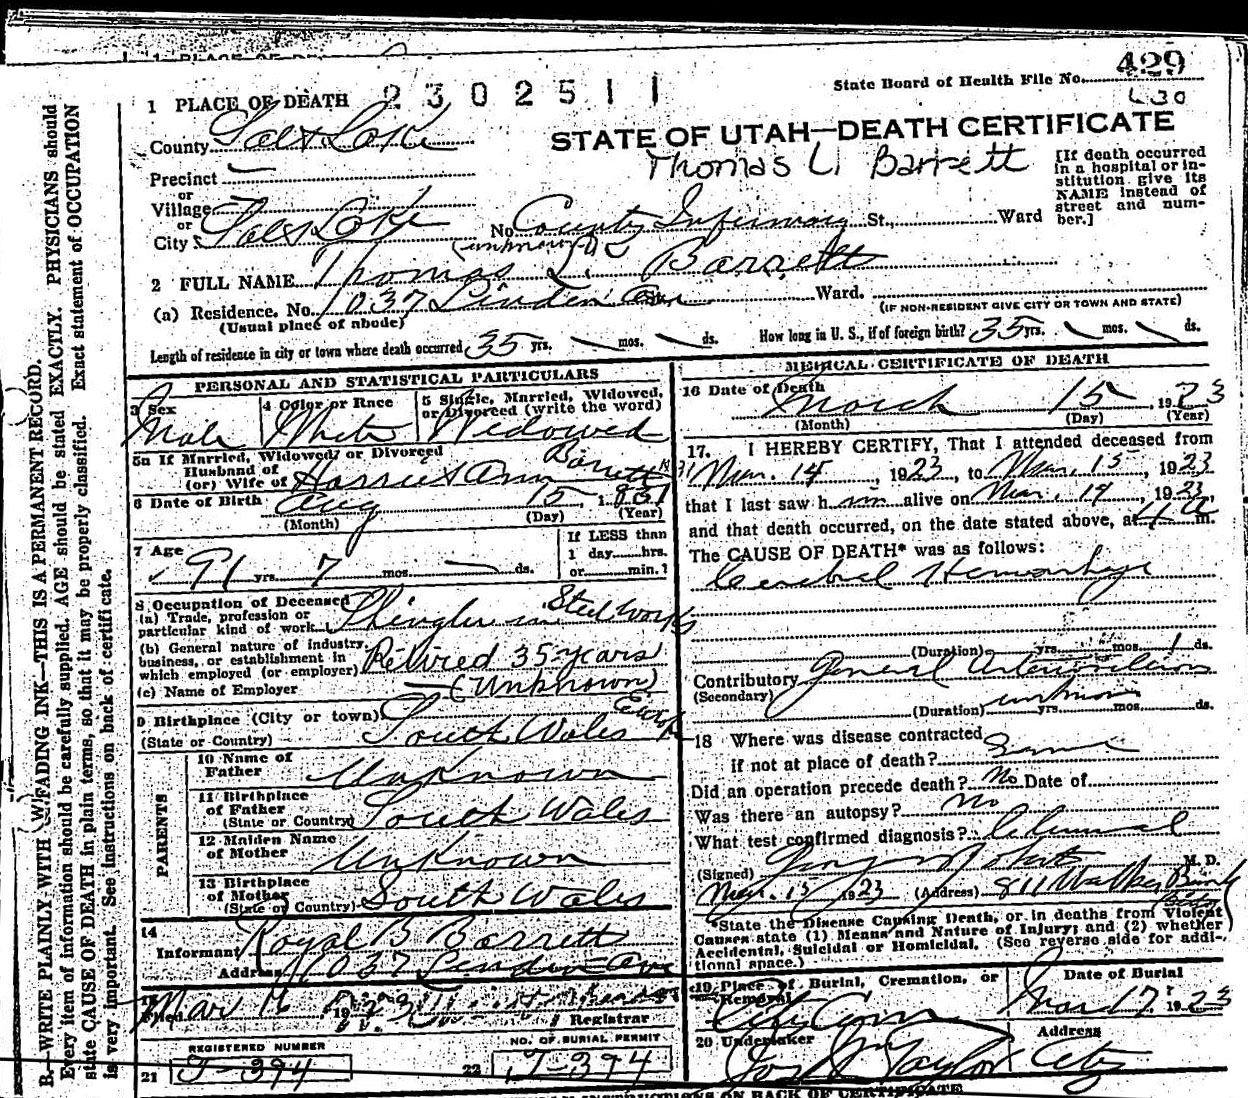 State Board of Health File No. 429
430
1 PLACE OF DEATH 2302511
STATE OF UTAH—DEATH CERTIFICATE
County Salt Lake
Thomas U Barrett
[If death occurred in a hospital or in-
stitution give its
NAME instead of
street and num-
ber.]
Precinct
or
Village
or
City Salt Lake No. County Infirmary St., Ward
(unknown)
2 FULL NAME Thomas U. Barrett
(a) Residence. No. 1037 Linden Ave Ward.
(Usual place of abode) (IF NON-RESIDENT GIVE CITY OR TOWN AND STATE)
Length of residence in city or town where death occurred 35 yrs. mos. ds. How long in U. S., if of foreign birth? 35 yrs. mos. ds.
PERSONAL AND STATISTICAL PARTICULARS
3 Sex Male
4 Color or Race White
5 Single, Married, Widowed, or Divorced (write the word) Widowed
5a If Married, Widowed, or Divorced
Husband of
(or) Wife of Harriet Ann Barrett
6 Date of Birth Aug 15 1831
(Month) (Day) (Year)
7 Age 91 yrs. 7 mos. ds.
If LESS than
1 day hrs.
or min.?
8 Occupation of Deceased
(a) Trade, profession or
particular kind of work Shingler in Steel Works
(b) General nature of industry,
business, or establishment in
which employed (or employer) Retired 35 years
(c) Name of Employer (Unknown)
9 Birthplace (City or town)
(State or Country) South Wales
PARENTS
10 Name of
Father Unknown
11 Birthplace
of Father
(State or Country) South Wales
12 Maiden Name
of Mother Unknown
13 Birthplace
of Mother
(State or Country) South Wales
14
Informant Royal B Barrett
Address 1037 Linden Ave
15
Filed Mar 16 1923 Registrar
REGISTERED NUMBER
21 J-394
NO. OF BURIAL PERMIT
22 J-394
MEDICAL CERTIFICATE OF DEATH
16 Date of Death
March 15 1923
(Month) (Day) (Year)
17. I HEREBY CERTIFY, That I attended deceased from
Mar. 14, 1923, to Mar. 15, 1923
that I last saw him alive on Mar. 14, 1923,
and that death occurred, on the date stated above, at 4 a m.
The CAUSE OF DEATH* was as follows:
Cerebral Hemorrhage
(Duration) yrs. mos. 1 ds.
Contributory General Arteriosclerosis
(Secondary)
(Duration) unknown yrs. mos. ds.
18 Where was disease contracted
if not at place of death? Same
Did an operation precede death? No Date of
Was there an autopsy? No
What test confirmed diagnosis? Clinical
(Signed) M. D.
Mar. 15, 1923 (Address) 811 Walker Bank Bldg
*State the Disease Causing Death, or in deaths from Violent
Causes state (1) Means and Nature of Injury; and (2) whether
Accidental, Suicidal or Homicidal. (See reverse side for addi-
tional space.)
19 Place of Burial, Cremation, or
Removal City Cem
Date of Burial
Mar 17 1923
20 Undertaker
Jos Wm Taylor
Address
City
B.—WRITE PLAINLY WITH UNFADING INK—THIS IS A PERMANENT RECORD.
Every item of information should be carefully supplied. AGE should be stated EXACTLY. PHYSICIANS should
state CAUSE OF DEATH in plain terms, so that it may be properly classified. Exact statement of OCCUPATION
is very important. See instructions on back of certificate.
INSTRUCTIONS ON BACK OF CERTIFICATE